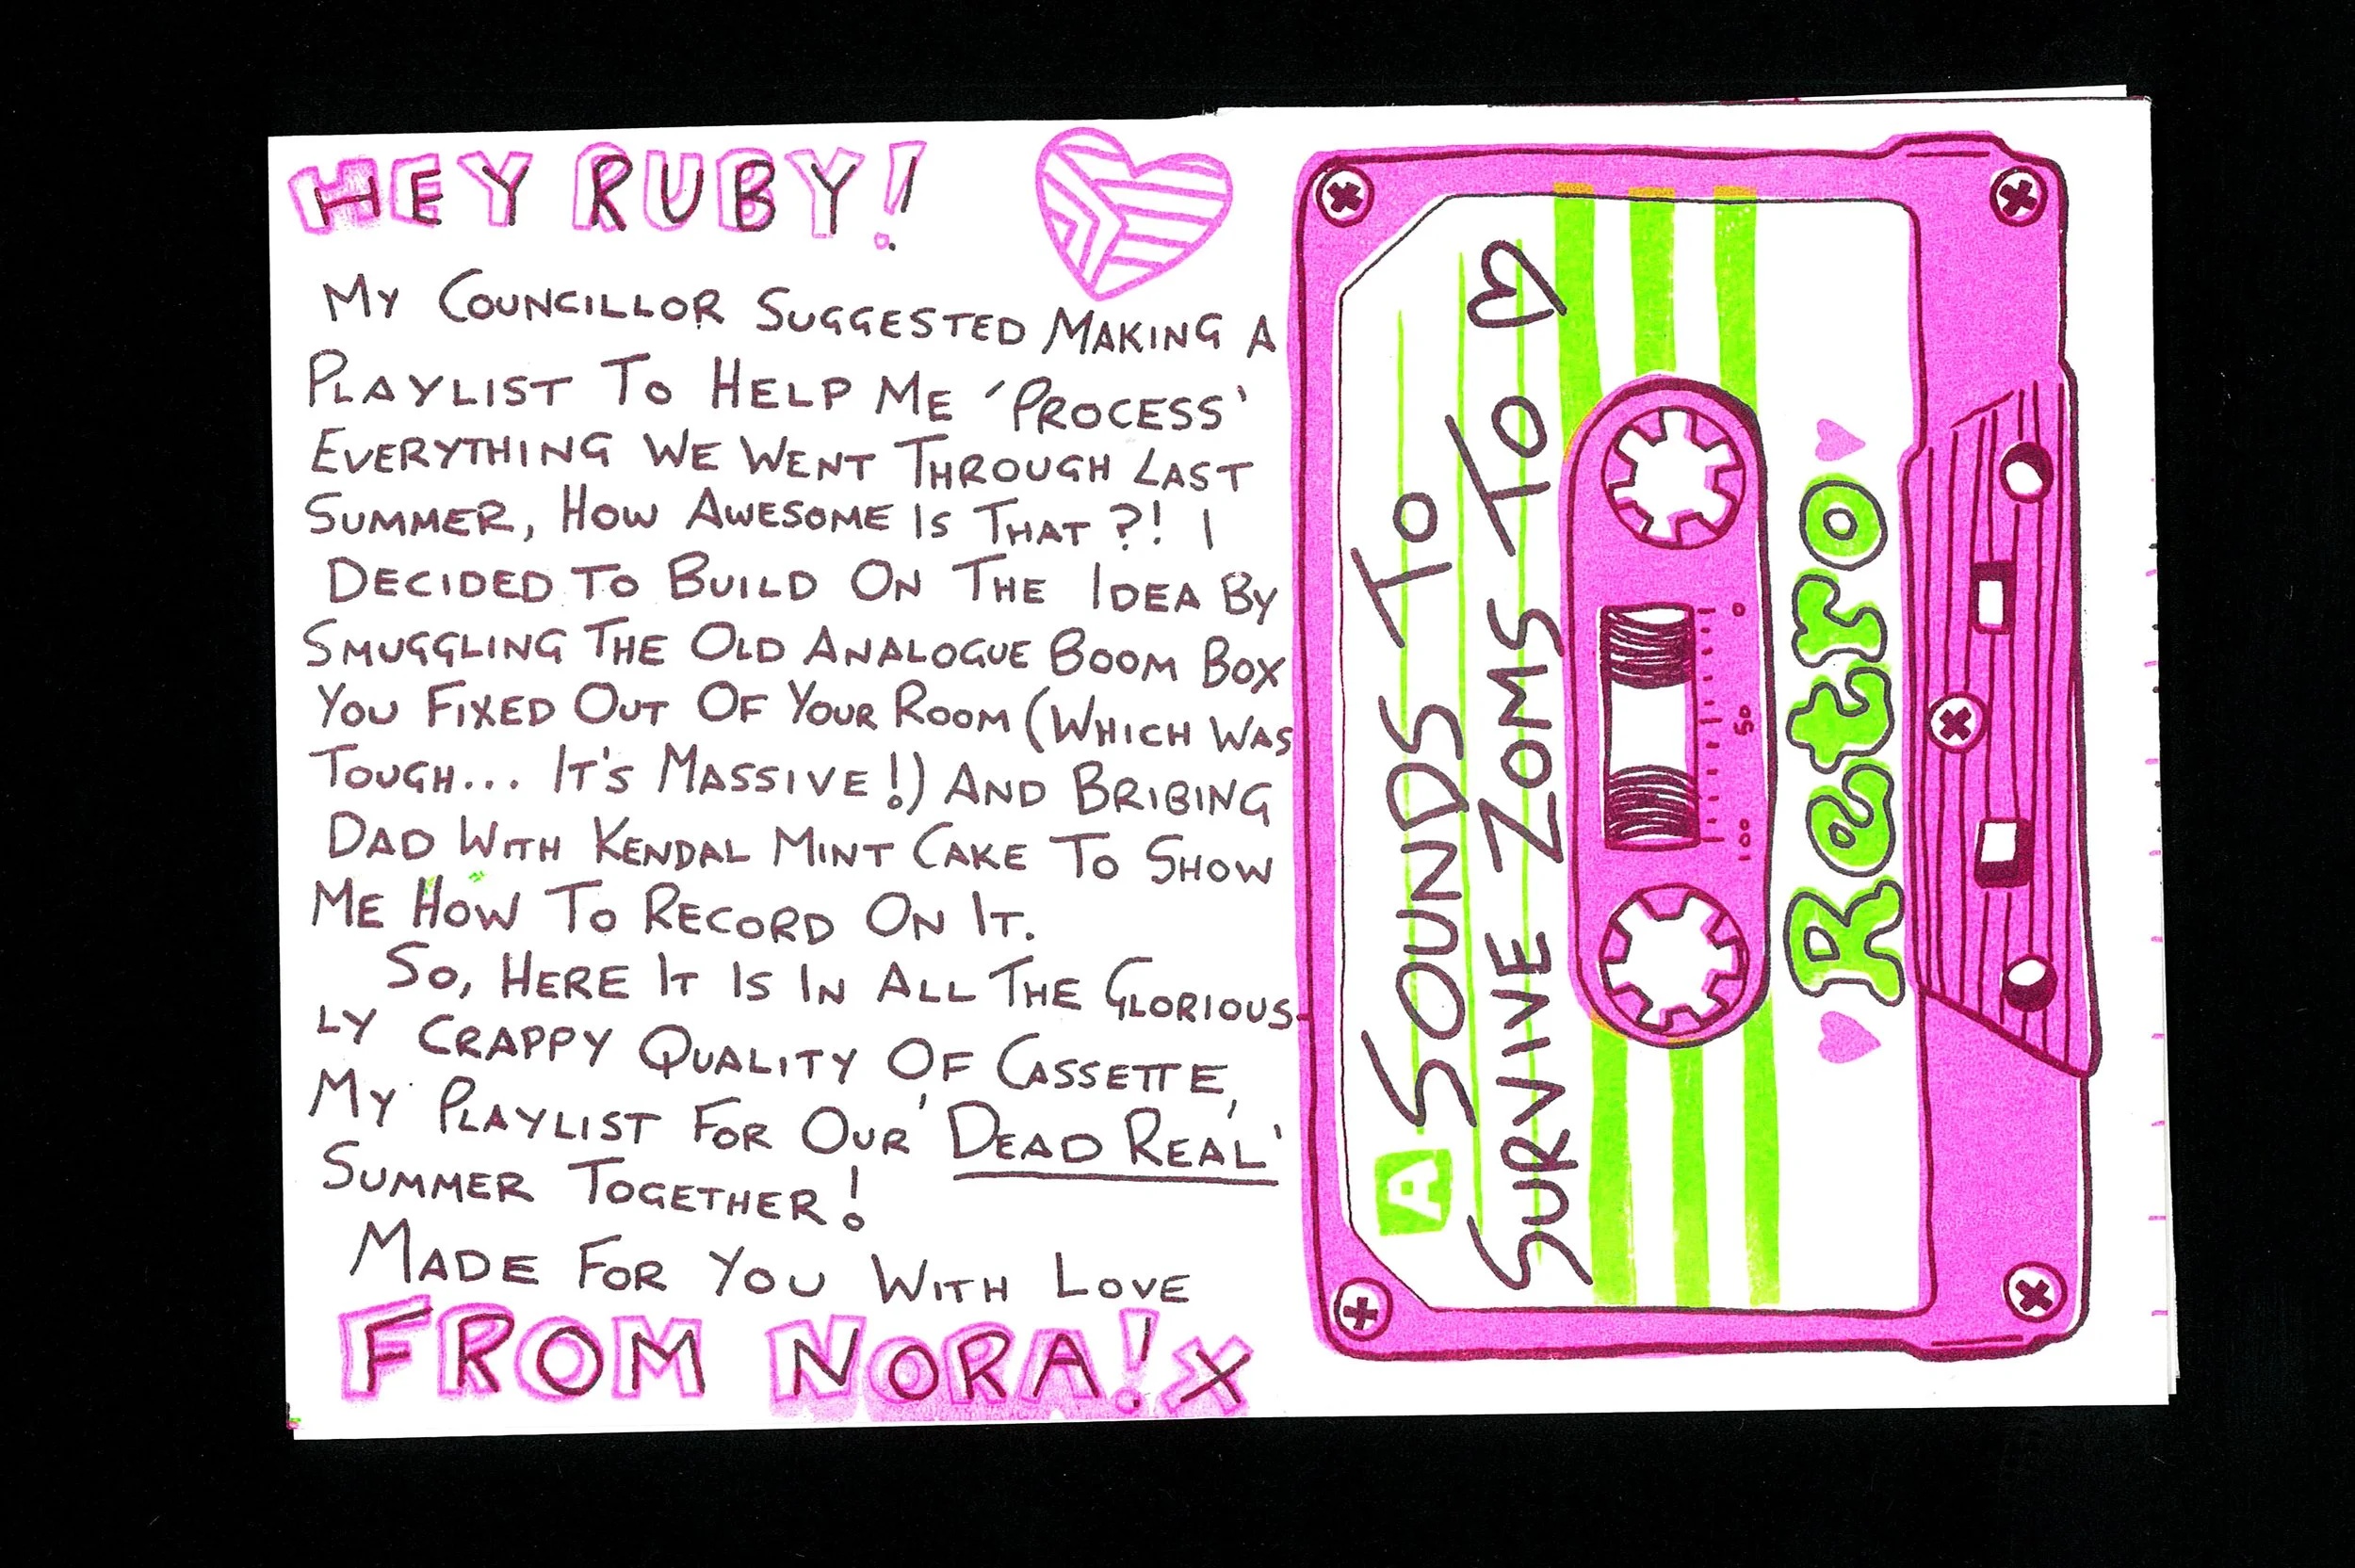 HEY RUBY!
MY COUNCILLOR SUGGESTED MAKING A
PLAYLIST TO HELP ME 'PROCESS'
EVERYTHING WE WENT THROUGH LAST
SUMMER, HOW AWESOME IS THAT?! I
DECIDED TO BUILD ON THE IDEA BY
SMUGGLING THE OLD ANALOGUE BOOM BOX
YOU FIXED OUT OF YOUR ROOM (WHICH WAS
TOUGH... IT'S MASSIVE!) AND BRIBING
DAD WITH KENDAL MINT CAKE TO SHOW
ME HOW TO RECORD ON IT.
SO, HERE IT IS IN ALL THE GLORIOUS-
LY CRAPPY QUALITY OF CASSETTE,
MY PLAYLIST FOR OUR 'DEAD REAL'
SUMMER TOGETHER!
MADE FOR YOU WITH LOVE
FROM NORA! X
A SOUNDS TO
SURVIVE ZOMS TO ♡
0 50 100
Retro